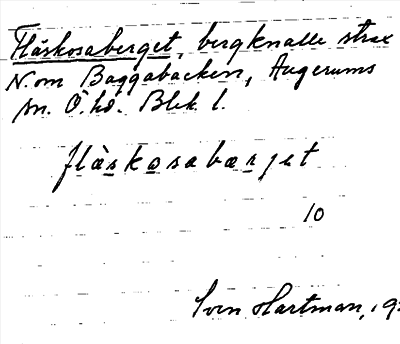 Flåskosaberget, bergknalle strax
N. om Baggabacken, Augerums
sn. Ö. hd. Blek. l.
flåskosabærjet
10
Sven Hartman, 19